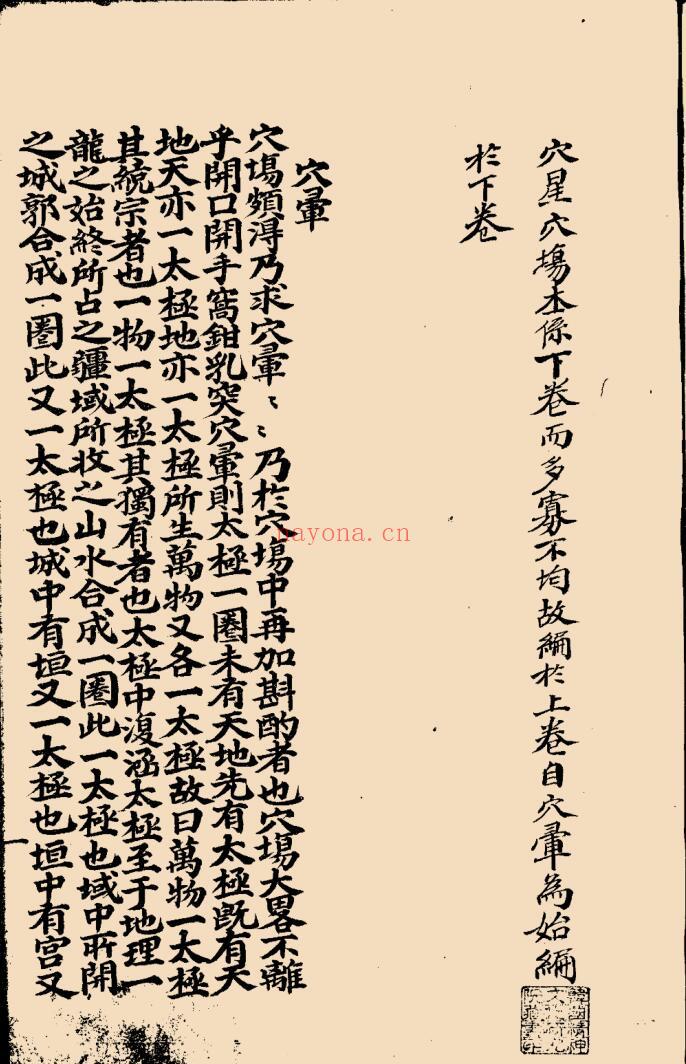 穴星穴塲本係下卷而多寡不均故編於上卷自穴暈為始編
於下卷
穴暈
穴塲頗淂乃求穴暈〻〻乃於穴塲中再加斟酌者也穴塲大畧不離
乎開口開手窩鉗乳突穴暈則太極一圈未有天地先有太極既有天
地天亦一太極地亦一太極所生萬物又各一太極故曰萬物一太極
其統宗者也一物一太極其獨有者也太極中復涵太極至于地理一
龍之始終所占之疆域所收之山水合成一圈此一太極也域中所開
之城郭合成一圈此又一太極也城中有垣又一太極也垣中有宫又
nayona.cn